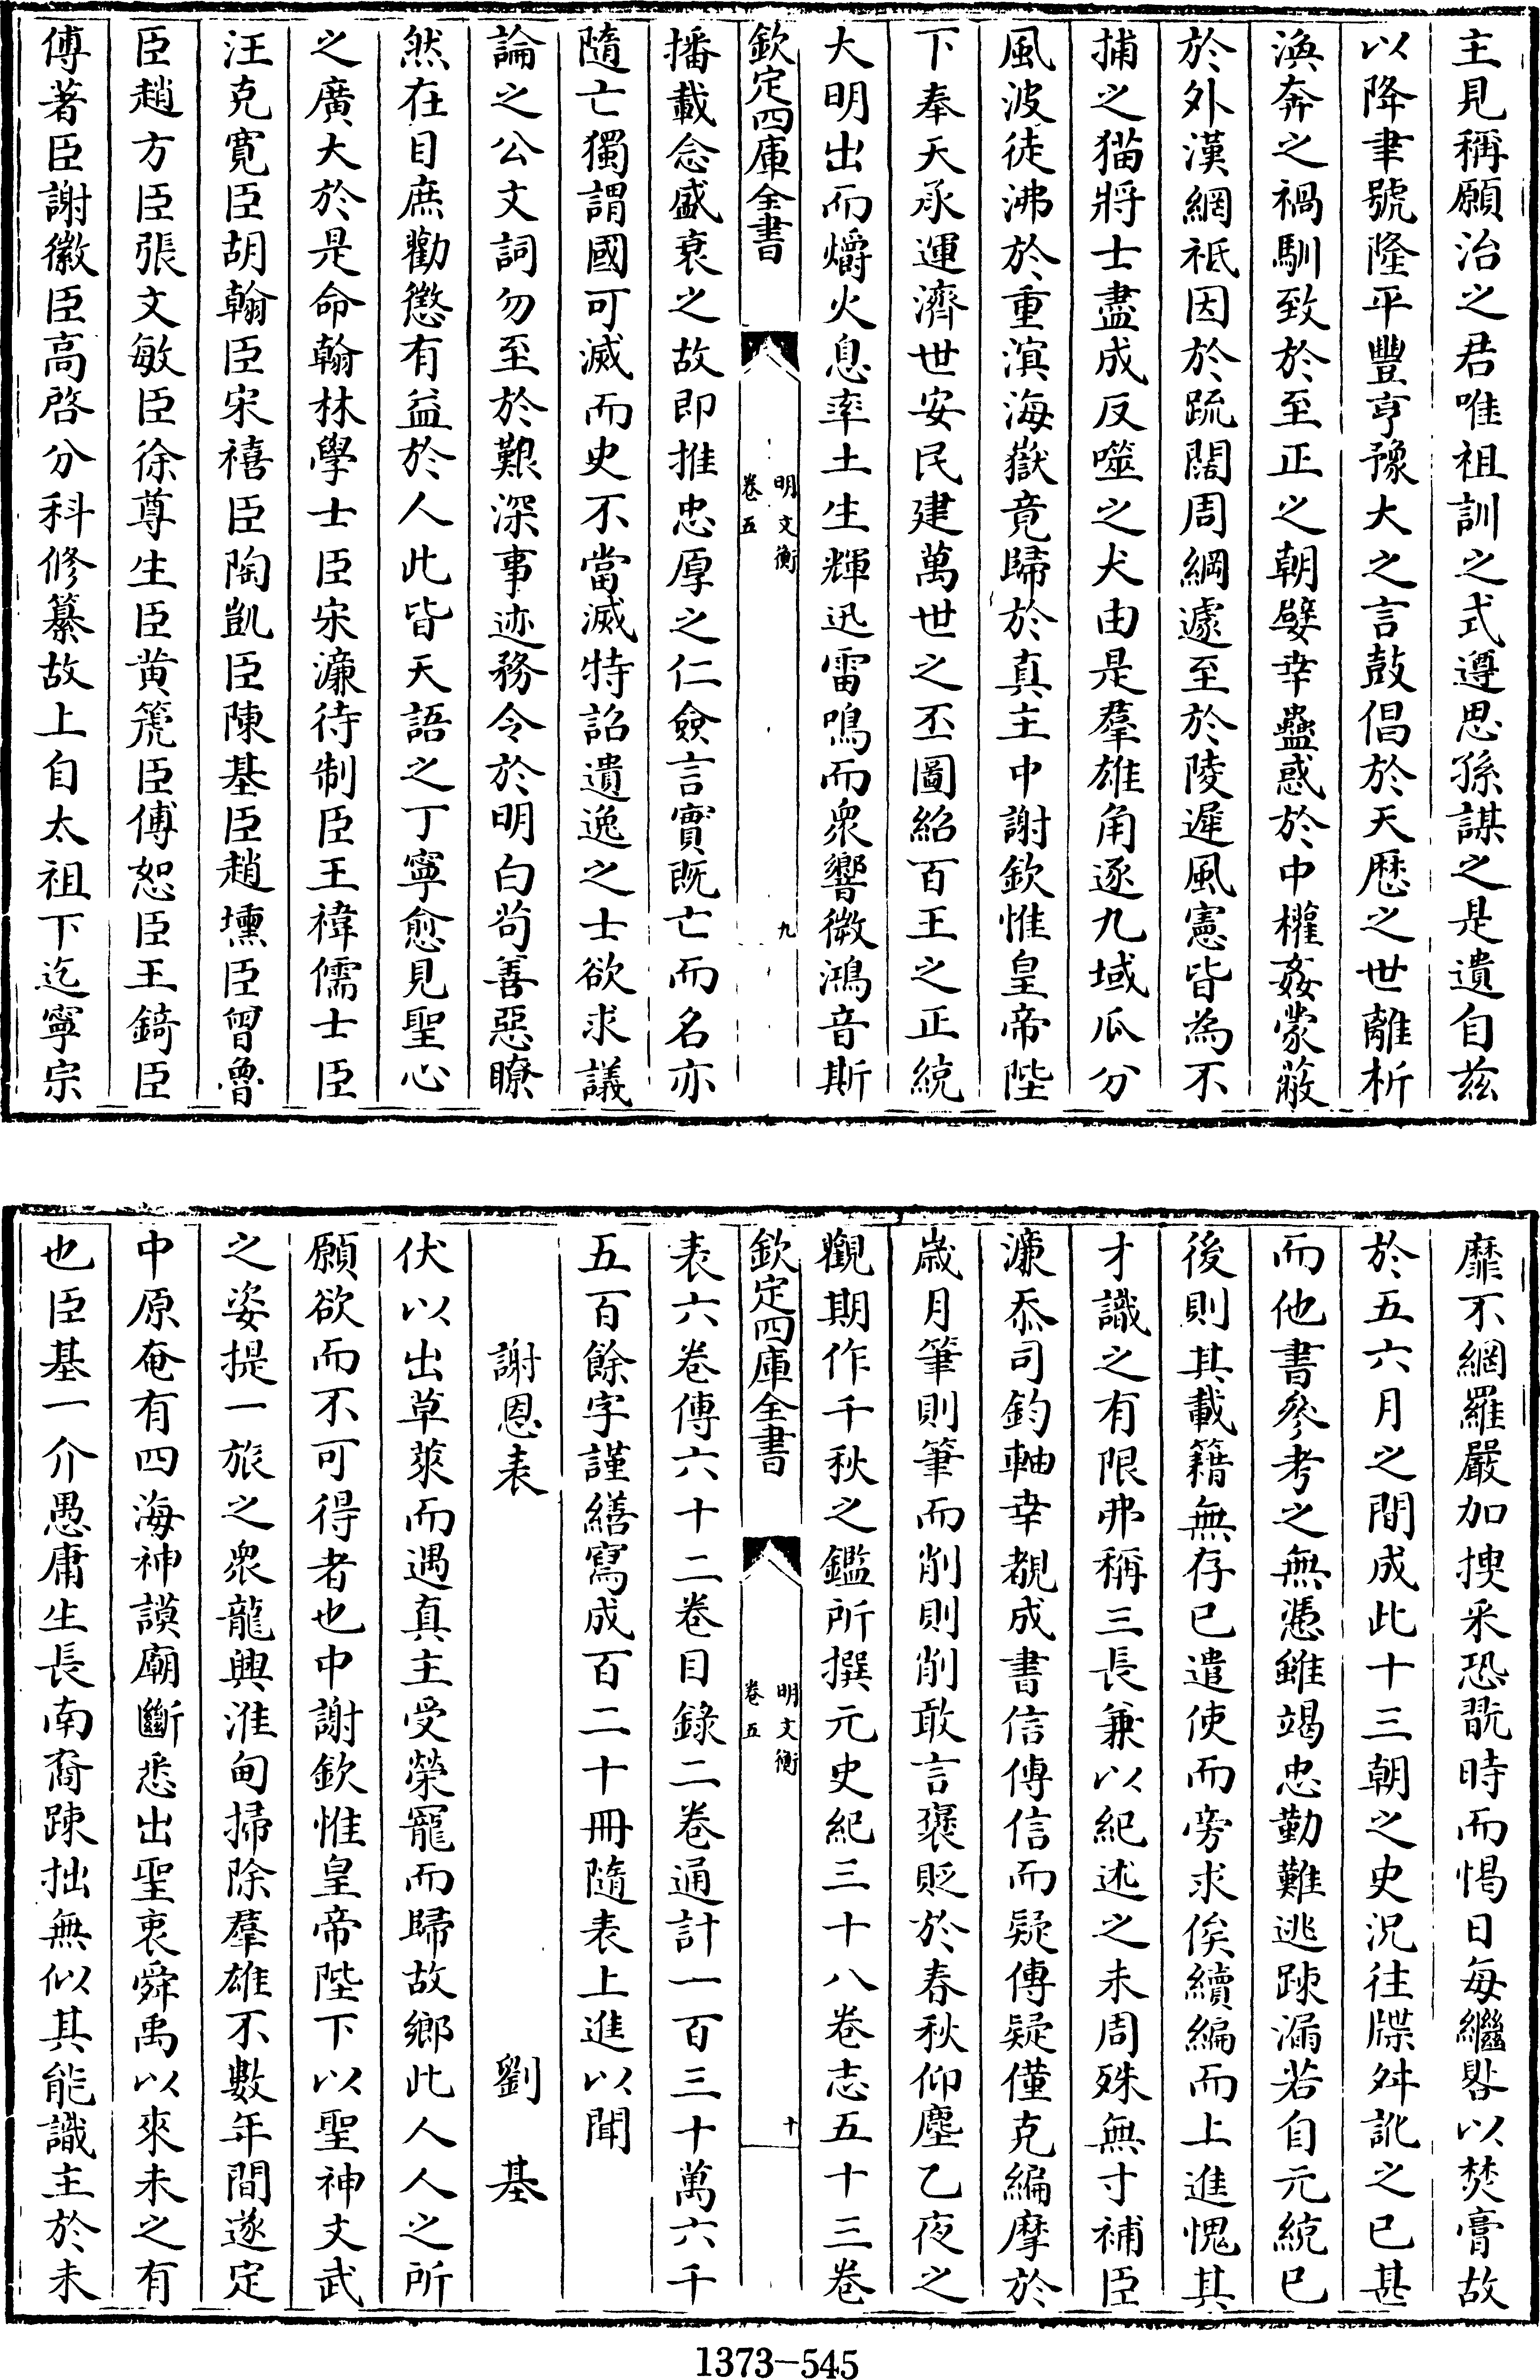 主見稱願治之君唯祖訓之式遵思孫謀之是遺自兹
以降聿號隆平豐亨豫大之言鼓倡於天歴之世離析
渙奔之禍馴致於至正之朝嬖幸蠱惑於中權姦蒙蔽
於外漢網祗因於疏闊周綱遽至於陵遲風憲皆為不
捕之猫將士盡成反噬之犬由是羣雄角逐九域瓜分
風波徒沸於重溟海嶽竟歸於真主中謝欽惟皇帝陛
下奉天承運濟世安民建萬世之丕圖紹百王之正統
大明出而爝火息率土生輝迅雷鳴而衆響微鴻音斯
欽定四庫全書
明文衡
卷五
九
播載念盛衰之故即推忠厚之仁僉言實既亡而名亦
隨亡獨謂國可滅而史不當滅特詔遺逸之士欲求議
論之公文詞勿至於艱深事迹務令於明白苟善惡瞭
然在目庶勸懲有益於人此皆天語之丁寧愈見聖心
之廣大於是命翰林學士臣宋濂待制臣王禕儒士臣
汪克寛臣胡翰臣宋禧臣陶凱臣陳基臣趙壎臣曾魯
臣趙方臣張文敏臣徐尊生臣黄箎臣傅恕臣王錡臣
傅著臣謝徽臣高啓分科修纂故上自太祖下迄寧宗
靡不網羅嚴加搜采恐翫時而愒日每繼晷以焚膏故
於五六月之間成此十三朝之史况往牒舛訛之已甚
而他書參考之無憑雖竭忠勤難逃踈漏若自元統已
後則其載籍無存已遣使而旁求俟續編而上進愧其
才識之有限弗稱三長兼以紀述之未周殊無寸補臣
濂忝司鈞軸幸覩成書信傳信而疑傳疑僅克編摩於
歲月筆則筆而削則削敢言褒貶於春秋仰塵乙夜之
觀期作千秋之鑑所撰元史紀三十八卷志五十三卷
欽定四庫全書
明文衡
卷五
十
表六卷傳六十二卷目錄二卷通計一百三十萬六千
五百餘字謹繕寫成百二十冊隨表上進以聞
謝恩表 劉基
伏以出草萊而遇真主受榮寵而歸故鄉此人人之所
願欲而不可得者也中謝欽惟皇帝陛下以聖神文武
之姿提一旅之衆龍興淮甸掃除羣雄不數年間遂定
中原奄有四海神謨廟斷悉出聖衷舜禹以來未之有
也臣基一介愚庸生長南裔踈拙無似其能識主於未
1373-545